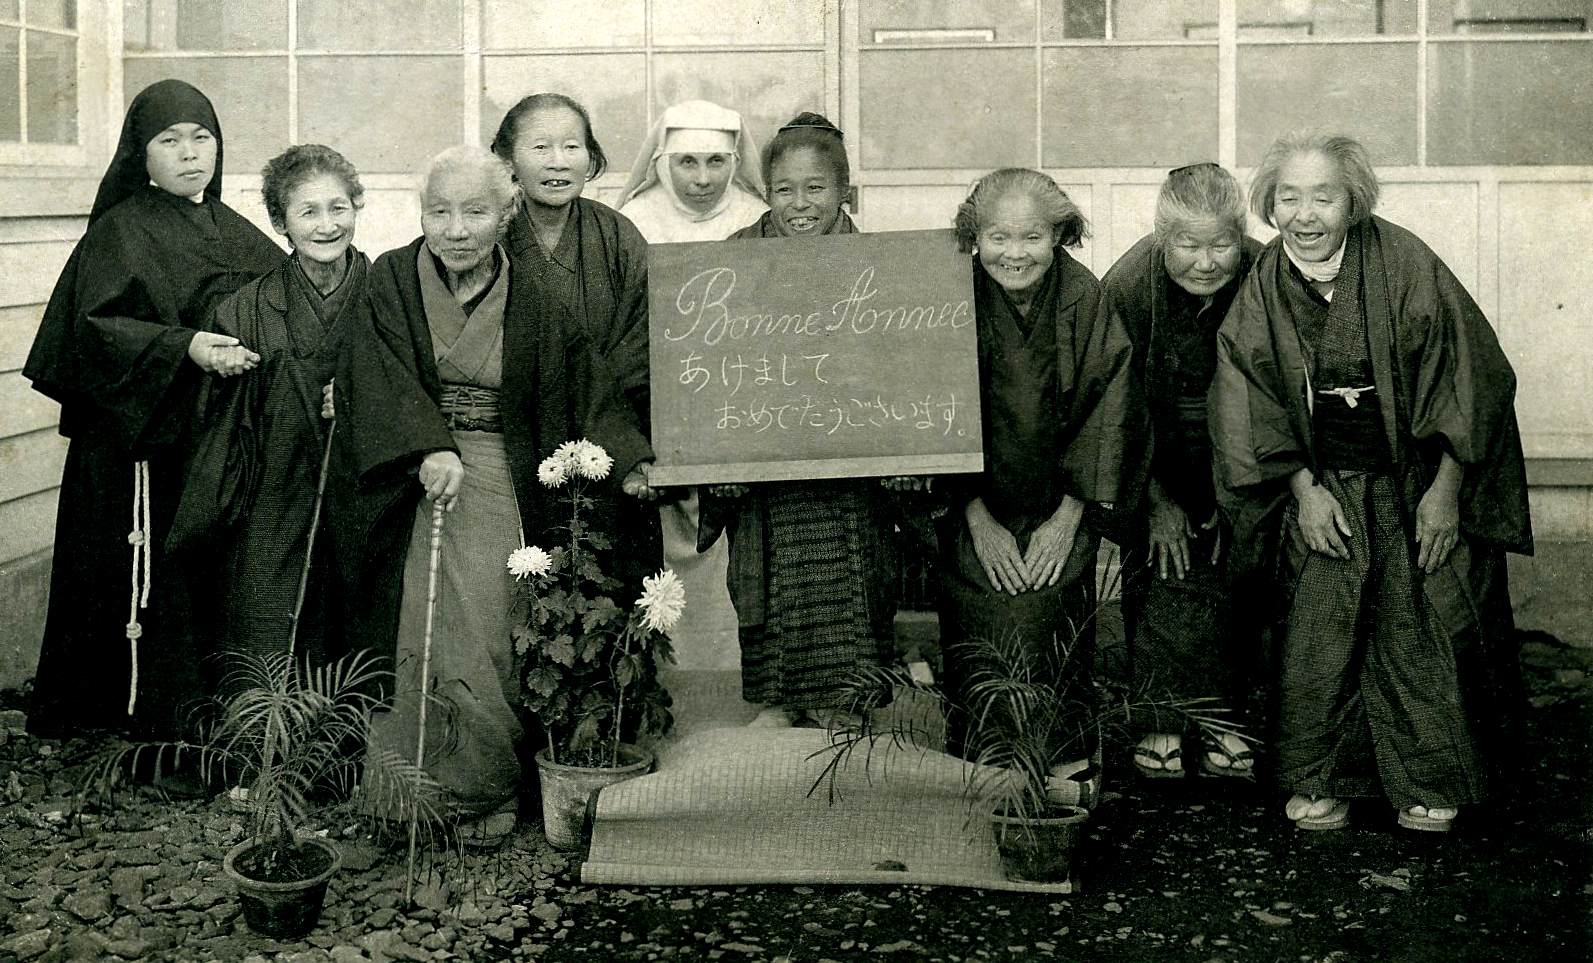 Bonne Année
あけまして
おめでたうございます。